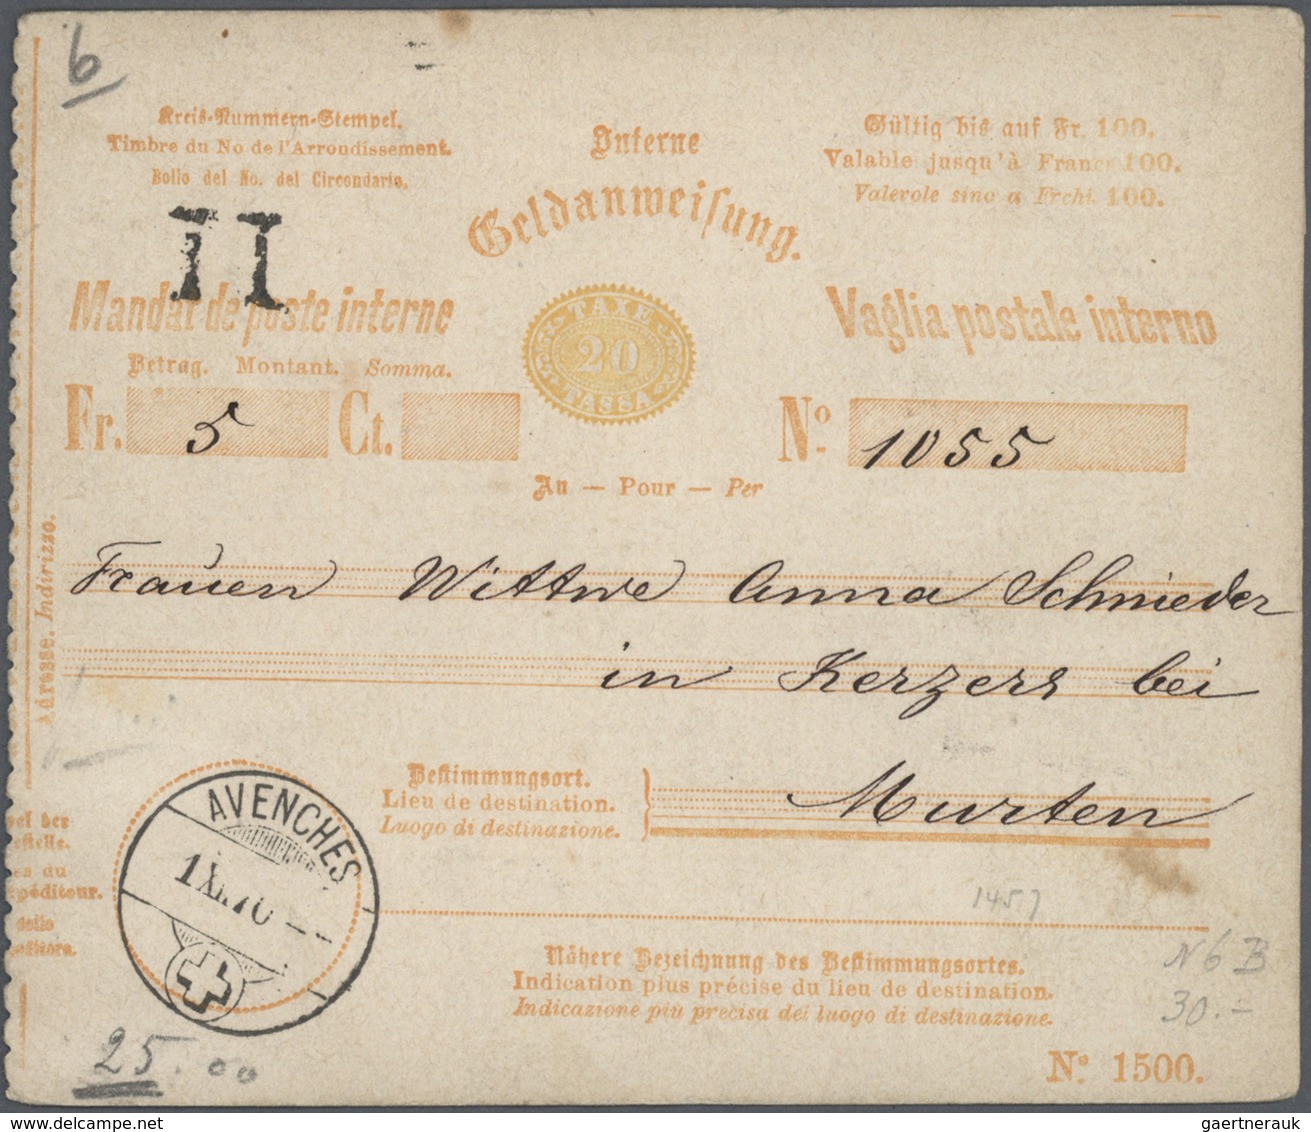 b
Kreis-Nummern-Stempel.
Timbre du No de l'Arrondissement.
Bollo del No. del Circondario.
II
Interne
Geldanweisung.
Gültig bis auf Fr. 100.
Valable jusqu'à Francs 100.
Valevole sino a Frchi. 100.
Mandat de poste interne
TAXE
20
TASSA
Vaglia postale interno
Betrag. Montant. Somma.
Fr. 5 Ct.
No. 1055
An — Pour — Per
Frauen Wittwe Anna Schnieder
in Kerzers bei
Murten
Adresse. Indirizzo.
Bestimmungsort.
Lieu de destination.
Luogo di destinazione.
AVENCHES
1 XII. 70
1457
Nähere Bezeichnung des Bestimmungsortes.
Indication plus précise du lieu de destination.
Indicazione più precisa del luogo di destinazione.
N 6 B
30.-
25.00
No. 1500.
gaertnerauk @ delcampe.net